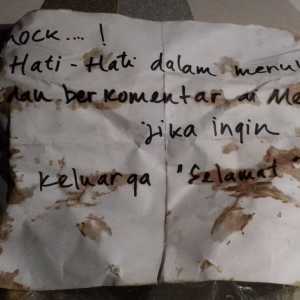 ....!
Hati-Hati dalam
dan berkomentar di
jika ingin
keluarga "Selamat"